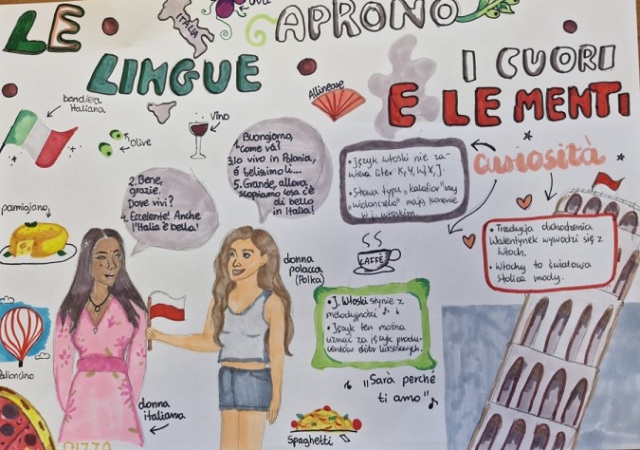 LE LINGUE
APRONO
I CUORI
E LE MENTI
ITALIA
UVA
bandiera
italiana
olive
vino
Allineare
parmigiano
Palloncino
PIZZA
1. Buongiorno,
come va?
3. Io vivo in Polonia,
è bellissimo li...
5. Grande, allora,
scopriamo cosa c'è
di bello
in Italia!
2. Bene,
grazie.
Dove vivi?
4. Eccelente! Anche
l'Italia è bella!
donna
polacca
(Polka)
donna
italiana
• Język włoski nie za-
wiera liter K, Y, W, X, J.
• Słowa typu „kalafior" czy
CAFFÈ
Curiosità
• Tradycja obchodzenia
Walentynek wywodzi się z
Włoch.
• Włochy to światowa
stolica mody.
• J. Włoski słynie z
melodyjności
• Język ten można
uznać za język produ-
centów dóbr luksusowych.
"Sarà perché
ti amo"
Spaghetti